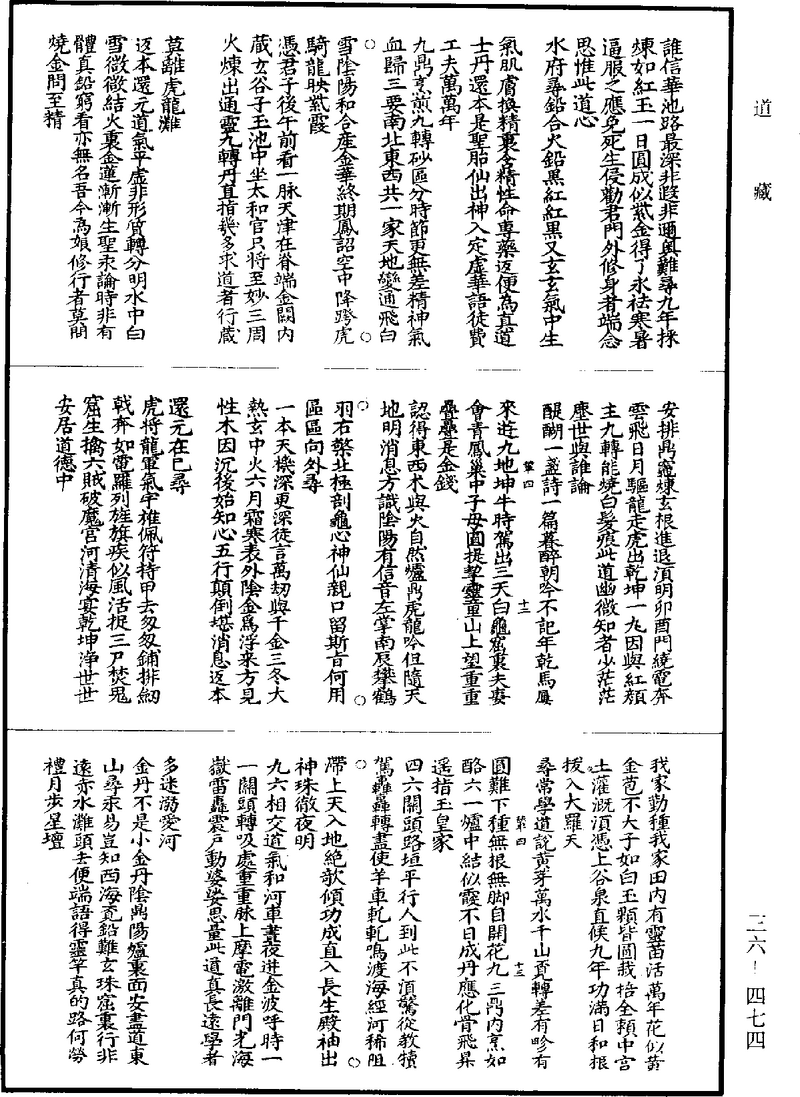 道藏
誰信華池路最深非遐非邇奧難尋九年採
煉如紅玉一日圓成似紫金得了永祛寒暑
逼服之應免死生侵勸君門外修身者端念
思惟此道心
水府尋鉛合火鉛黑紅紅黑又玄玄氣中生
氣肌膚換精裏含精性命專藥返便為真道
士丹還本是聖胎仙出神入定虛華語徒費
工夫萬萬年
九鼎烹煎九轉砂區分時節更無差精神氣
血歸三要南北東西共一家天地變通飛白
雪陰陽和合產金華終期鳳詔空中降跨虎
騎龍映紫霞
憑君子後午前看一脉天津在脊端金闕內
藏玄谷子玉池中坐太和官只將至妙三周
火煉出通靈九轉丹直指幾多求道者行藏
莫離虎龍灘
返本還元道氣平虛非形質轉分明水中白
雪微微結火裏金蓮漸漸生聖汞論時非有
體真鉛窮看亦無名吾今為娘修行者莫問
燒金問至精
安排鼎竈煉玄根進退須明卯酉門繞電奔
雲飛日月驅龍走虎出乾坤一丸因與紅顏
主九轉能燒白髮痕此道幽微知者少茫茫
塵世與誰論
醍醐一盞詩一篇暮醉朝吟不記年乾馬屢
第四
十二
來遊九地坤牛時駕出三天白龜窟裏夫妻
會青鳳巢中子母圓提挈靈童山上望重重
疊疊是金錢
認得東西木與火自然爐鼎虎龍吟但隨天
地明消息方識陰陽有信音左掌南辰攀鶴
羽右擎北極剖龜心神仙親口留斯旨何用
區區向外尋
一本天機深更深徒言萬劫與千金三冬大
熱玄中火六月霜寒表外陰金為浮來方見
性木因沉後始知心五行顛倒堪消息返本
還元在己尋
虎將龍軍氣宇雄佩符持甲去匆匆鋪排劒
戟奔如電羅列旌旗疾似風活捉三尸焚鬼
窟生擒六賊破魔宮河清海宴乾坤淨世世
安居道德中
我家勤種我家田內有靈苗活萬年花似黃
金苞不大子如白玉顆皆圓栽培全賴中宮
土灌溉須憑上谷泉直候九年功滿日和根
拔入大羅天
尋常學道說黃芽萬水千山覓轉差有畛有
第四
十三
園難下種無根無脚自開花九三鼎內烹如
酪六一爐中結似霞不日成丹應化骨飛昇
遥指玉皇家
四六關頭路垣平行人到此不須驚從教犢
駕轟轟轉盡使羊車軋軋鳴渡海經河稀阻
滯上天入地絶欹傾功成直入長生殿袖出
神珠徹夜明
九六相交道氣和河車晝夜迸金波呼時一
一關頭轉吸處重重脉上摩電激離門光海
嶽雷轟震戶動婆娑思量此道真長遠學者
多迷溺愛河
金丹不是小金丹陰鼎陽爐裏面安盡道東
山尋汞易豈知西海覓鉛難玄珠窟裏行非
遠赤水灘頭去便端認得靈竿真的路何勞
禮月步星壇
三六-四七四